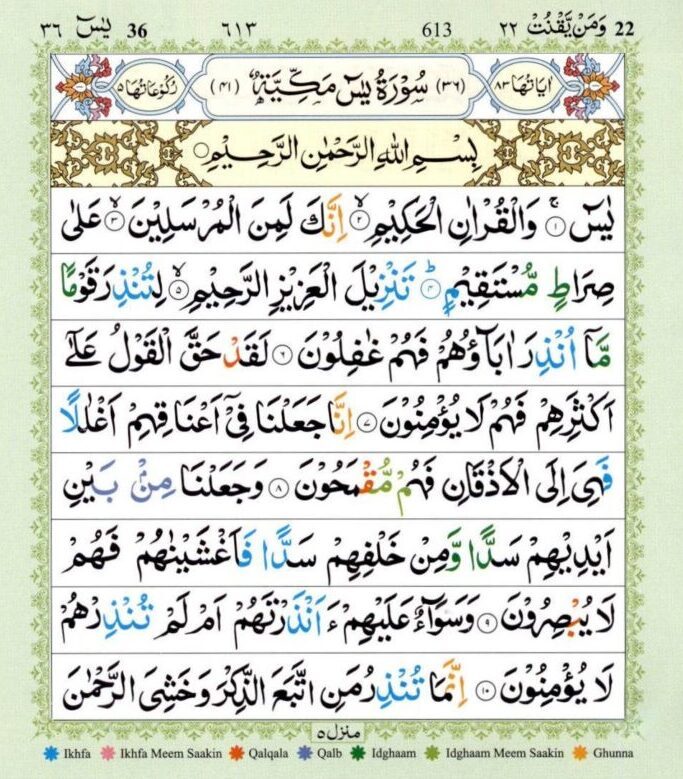 22 وَمَنْ يَّقْنُتْ ٢٢ 613 ٦١٣ 36 يٰسٓ ٣٦
اٰيَاتُهَا ٨٣ (٣٦) سُوْرَةُ يٰسٓ مَكِّيَّةٌ (٤١) رُكُوْعَاتُهَا ٥
بِسْمِ اللّٰهِ الرَّحْمٰنِ الرَّحِيْمِ
يٰسٓ ۚ ١ وَالْقُرْاٰنِ الْحَكِيْمِ ۙ ٢ اِنَّكَ لَمِنَ الْمُرْسَلِيْنَ ۙ ٣ عَلٰى
صِرَاطٍ مُّسْتَقِيْمٍ ؕ ٤ تَنْزِيْلَ الْعَزِيْزِ الرَّحِيْمِ ۙ ٥ لِتُنْذِرَ قَوْمًا
مَّاۤ اُنْذِرَ اٰبَآؤُهُمْ فَهُمْ غٰفِلُوْنَ ٦ لَقَدْ حَقَّ الْقَوْلُ عَلٰۤى
اَكْثَرِهِمْ فَهُمْ لَا يُؤْمِنُوْنَ ٧ اِنَّا جَعَلْنَا فِيْۤ اَعْنَاقِهِمْ اَغْلٰلًا
فَهِيَ اِلَى الْاَذْقَانِ فَهُمْ مُّقْمَحُوْنَ ٨ وَجَعَلْنَا مِنْۢ بَيْنِ
اَيْدِيْهِمْ سَدًّا وَّمِنْ خَلْفِهِمْ سَدًّا فَاَغْشَيْنٰهُمْ فَهُمْ
لَا يُبْصِرُوْنَ ٩ وَسَوَآءٌ عَلَيْهِمْ ءَاَنْذَرْتَهُمْ اَمْ لَمْ تُنْذِرْهُمْ
لَا يُؤْمِنُوْنَ ١٠ اِنَّمَا تُنْذِرُ مَنِ اتَّبَعَ الذِّكْرَ وَخَشِيَ الرَّحْمٰنَ
منزل ٥
Ikhfa Ikhfa Meem Saakin Qalqala Qalb Idghaam Idghaam Meem Saakin Ghunna